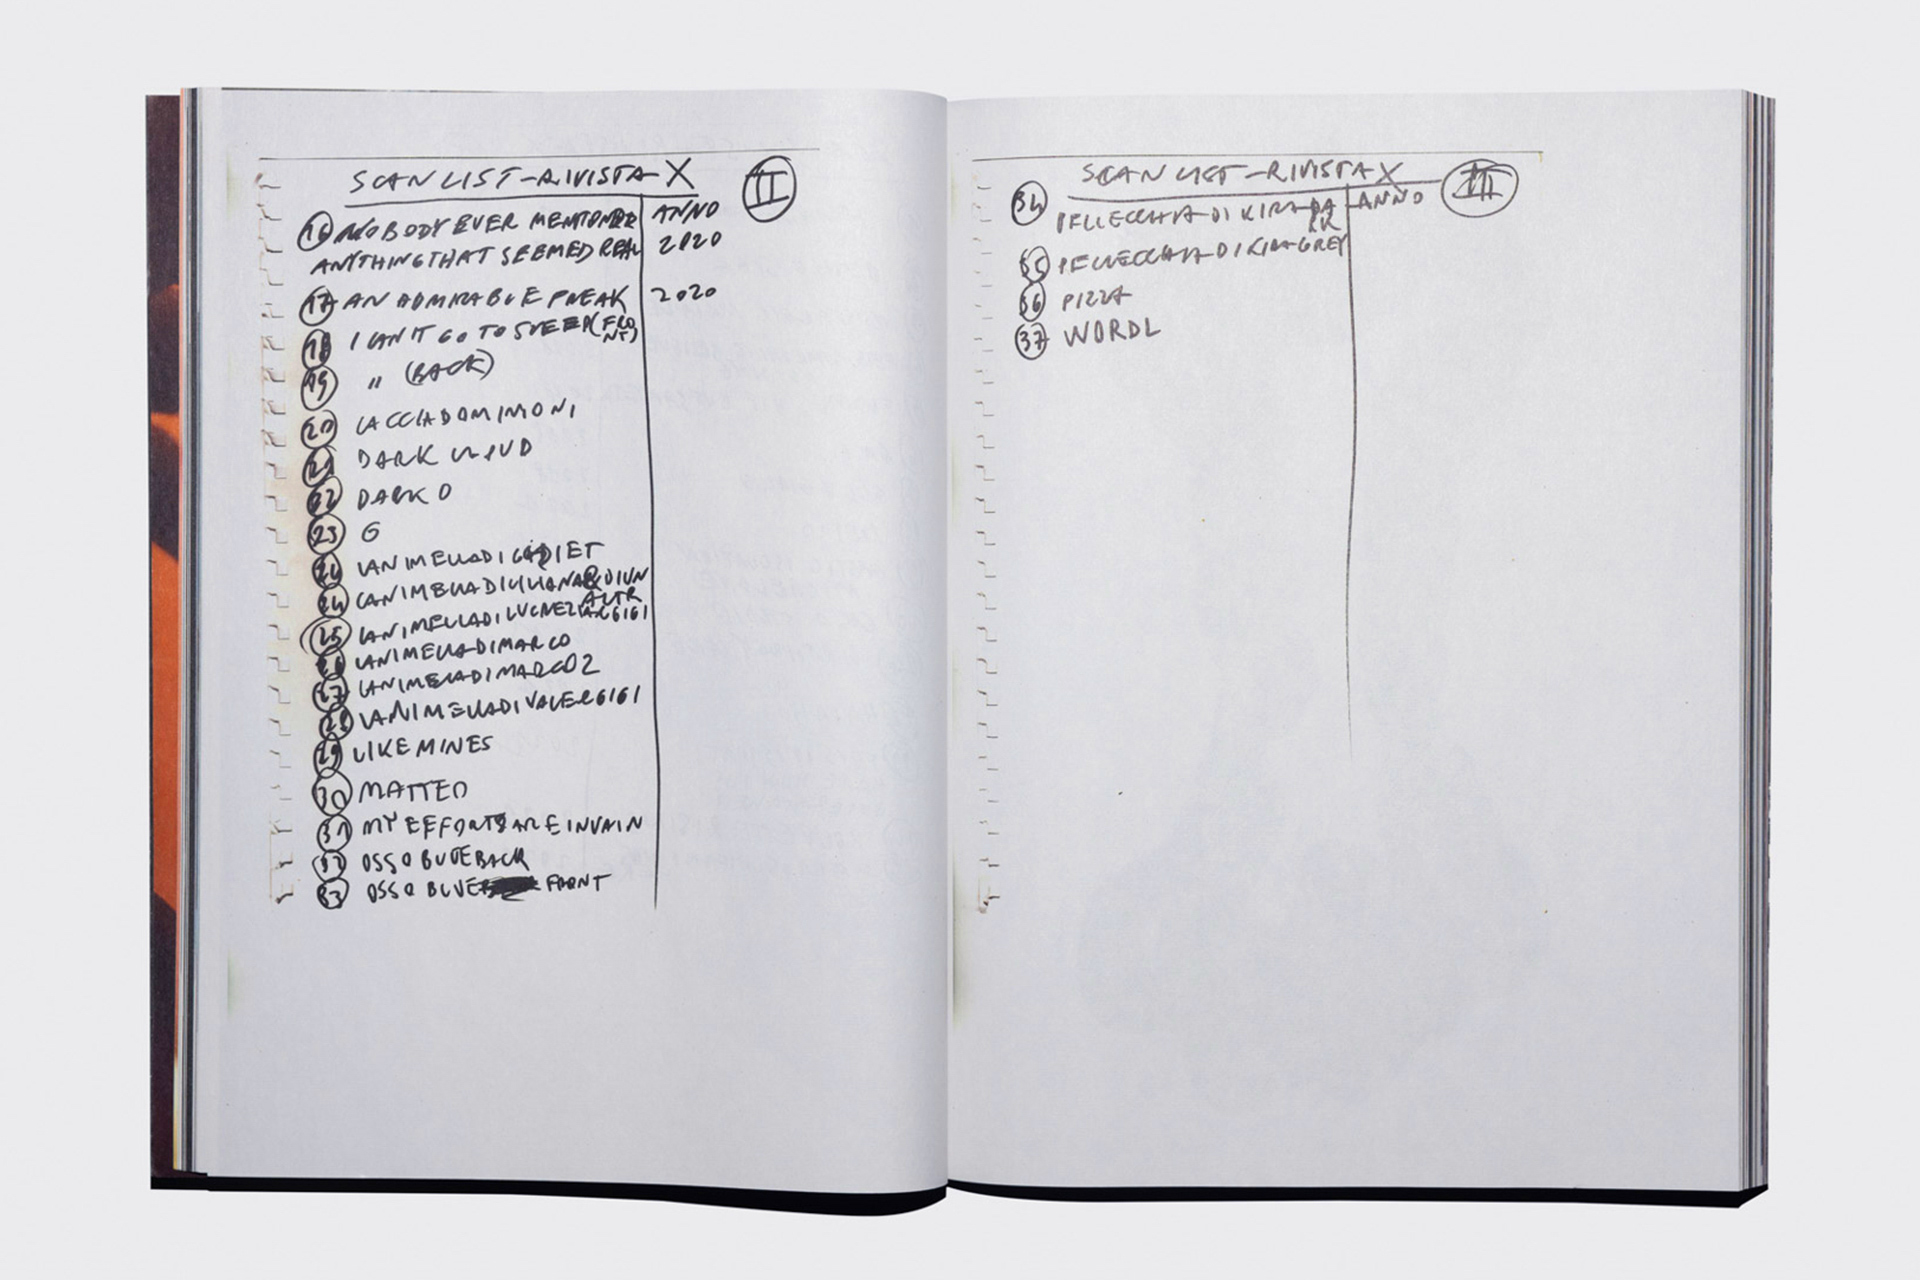 SCAN LIST - RIVISTA X
II
ANNO
16 NOBODY EVER MENTIONED
ANYTHING THAT SEEMED REAL 2020
17 AN ADMIRABLE FREAK 2020
18 I CAN'T GO TO SLEEP (FRONT)
19 " (BACK)
20 LACCIADOMINIONI
21 DARK CLOUD
22 DARK O
23 G
24 LANIMELLADI
24 LANIMELLADI
25 LANIMELLADI
26 LANIMELLADIMARCO
27 LANIMELLADIMARCO2
28 LANIMELLADIVALERGIGI
29 LIKE MINES
30 MATTEO
31 MY EFFORTS ARE IN VAIN
32 OSSO BUVEBACK
33 OSSO BUVE FRONT
SCAN LIST - RIVISTA X
III
34 PELLECCHIA DI KIRA ANNO
35 PELLECCHIA DI KIRA GREY
36 PIZZA
37 WORDL